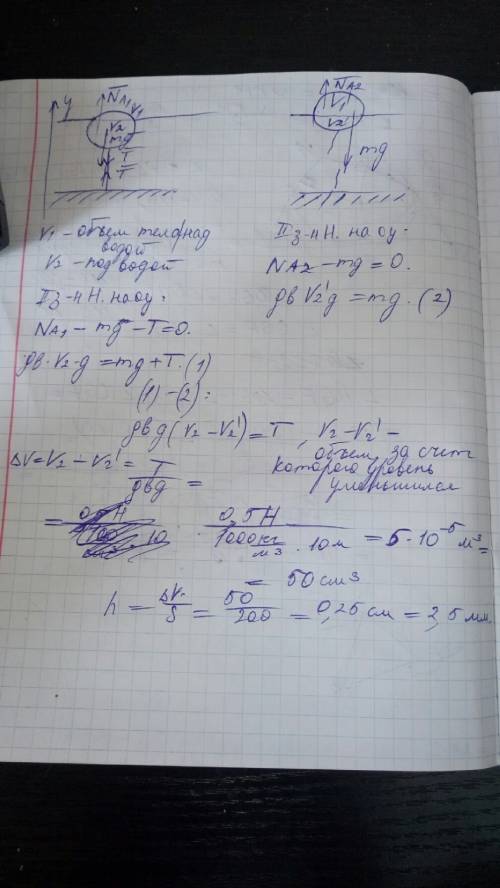 y
N̅A1 V1
V2
mg
T̅
T̅
N̅A2
V1
V2'
mg
V1 – объем тела над
водой
V2 – под водой
II з-н Н. на оу:
NA1 – mg – T = 0.
ρв·V2·g = mg + T. (1)
II з-н Н. на оу:
NA2 – mg = 0.
ρв V2' g = mg. (2)
(1) – (2):
ρв g (V2 – V2') = T , V2 – V2' –
объем, за счет
которого уровень
уменьшился
ΔV = V2 – V2' = T / ρвg =
= 0,5 Н / 1000 кг/м3 · 10 м = 5·10⁻⁵ м³ =
= 50 см3
h = ΔV / S = 50 / 200 = 0,25 см = 2,5 мм.